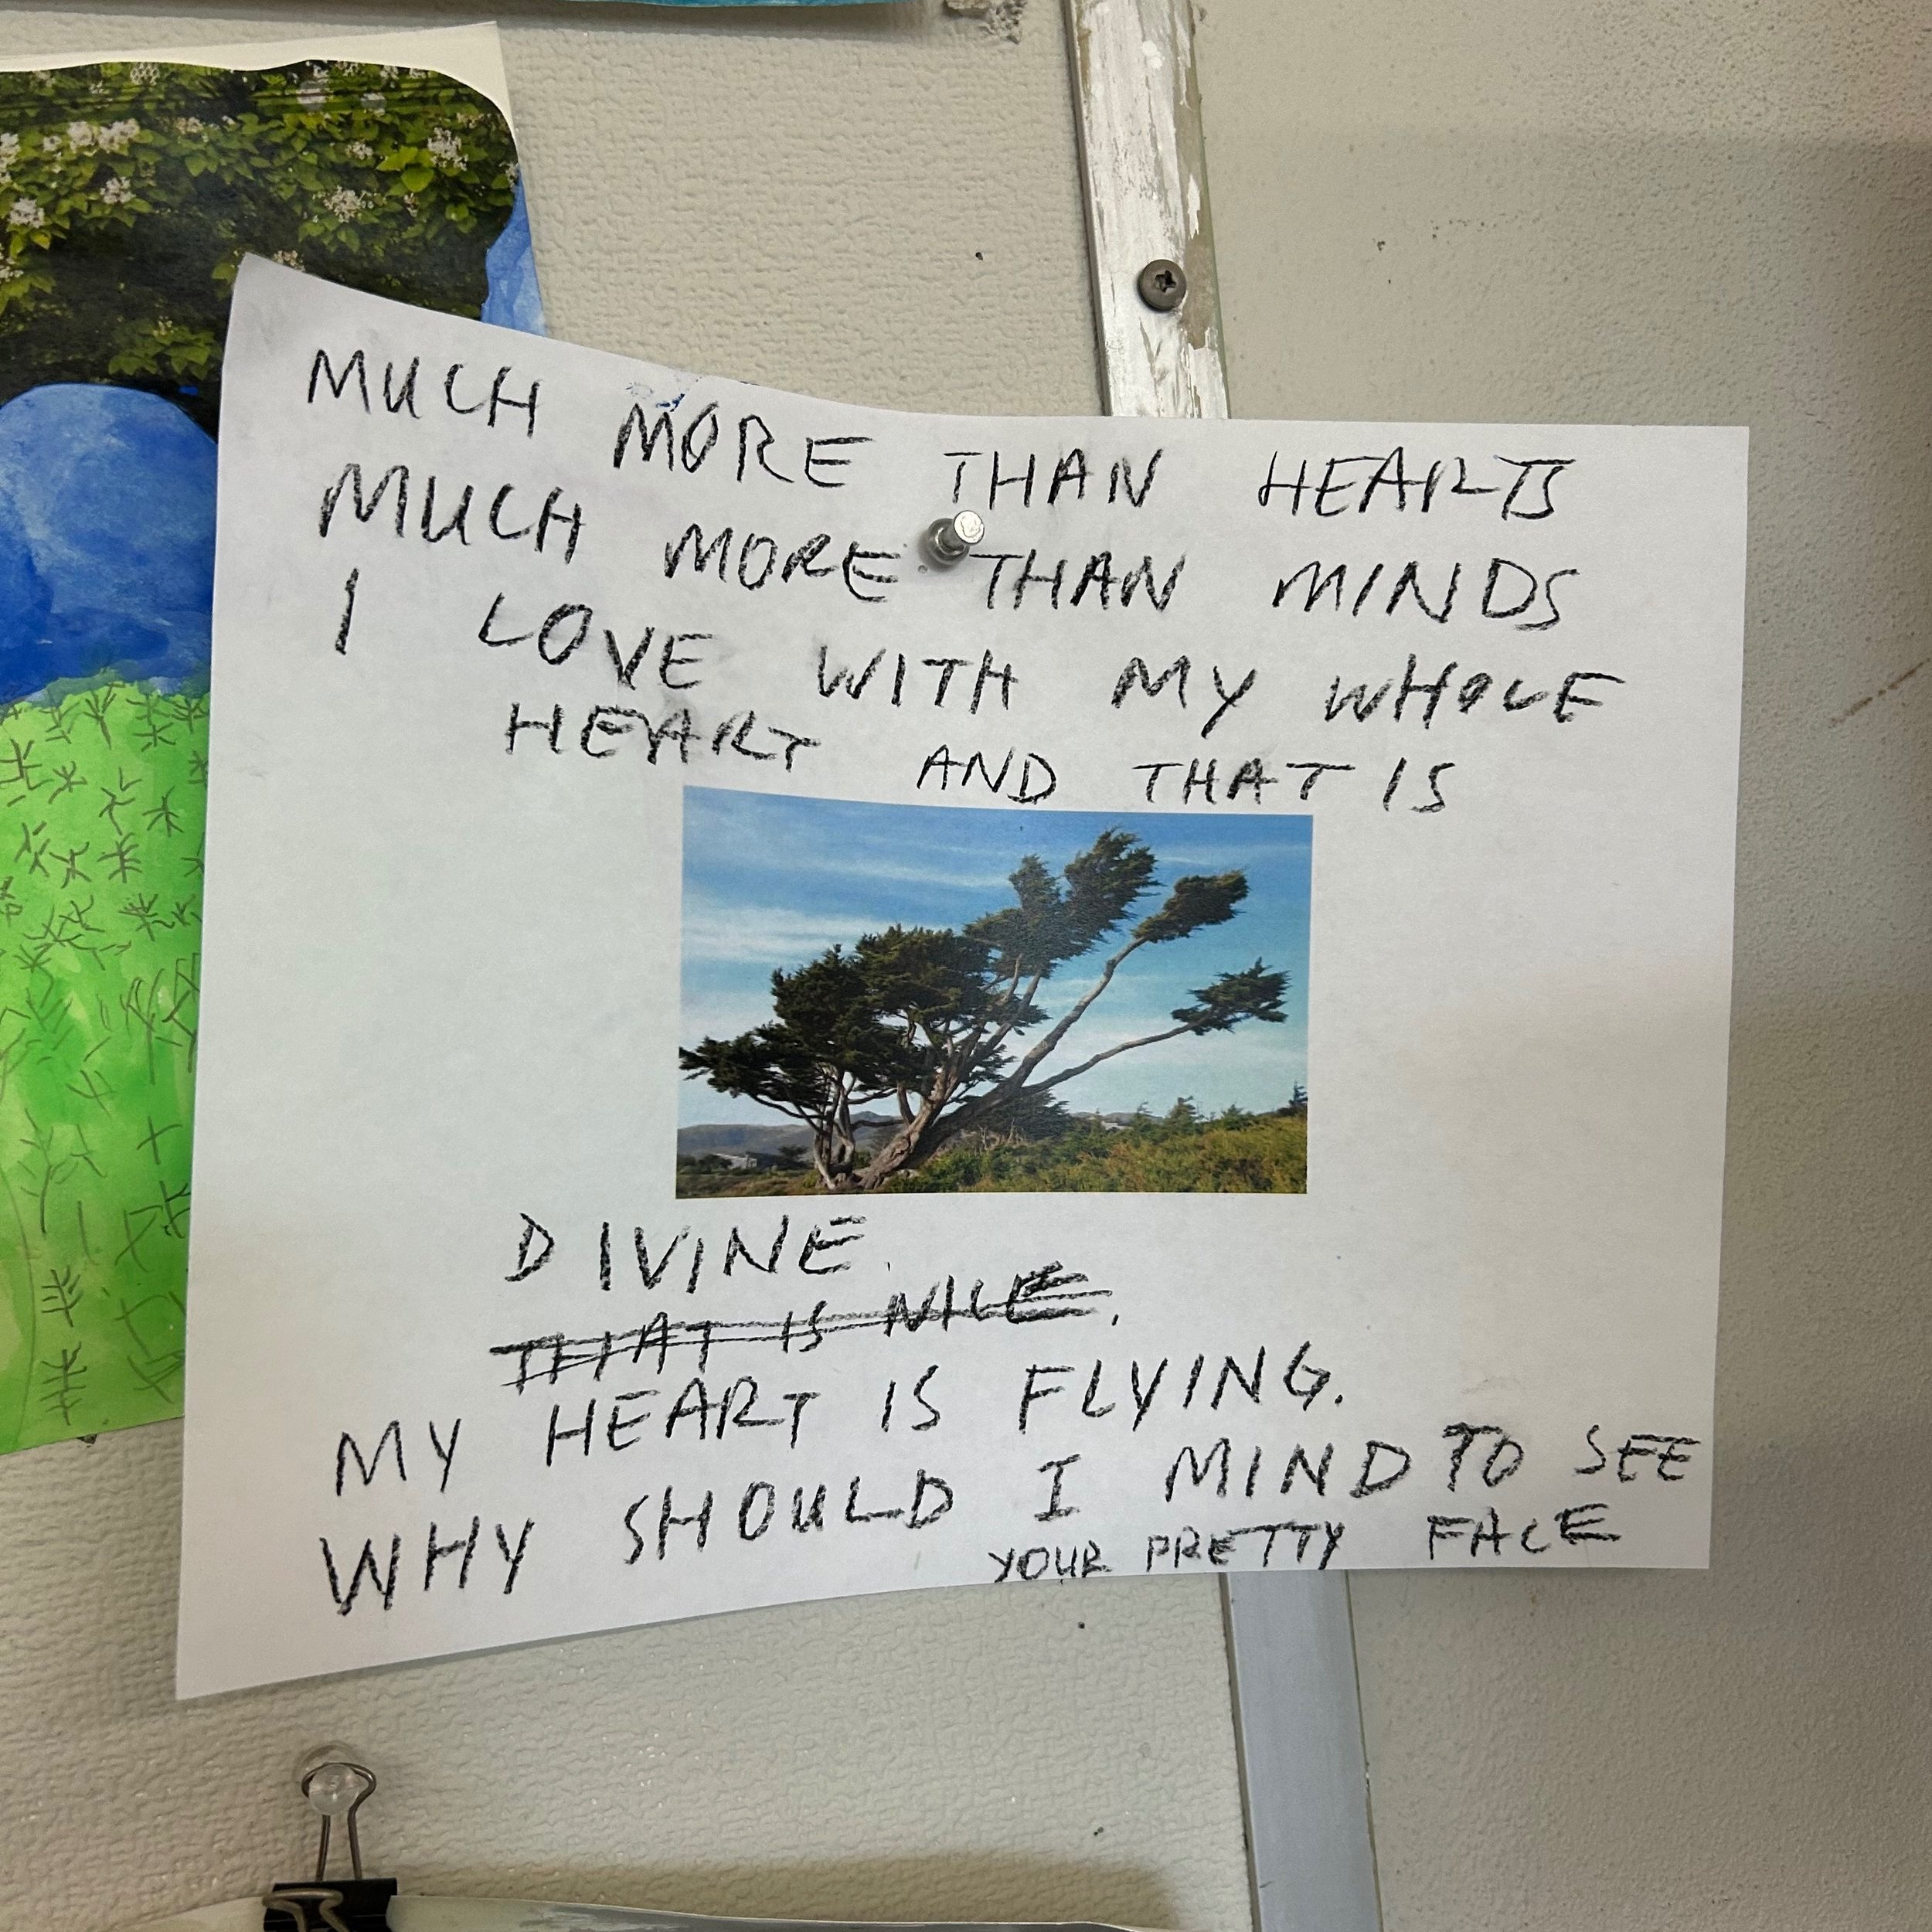 MUCH MORE THAN HEARTS
MUCH MORE THAN MINDS
I LOVE WITH MY WHOLE
HEART AND THAT IS
DIVINE.
THAT IS NICE.
MY HEART IS FLYING.
WHY SHOULD I MIND TO SEE
YOUR PRETTY FACE